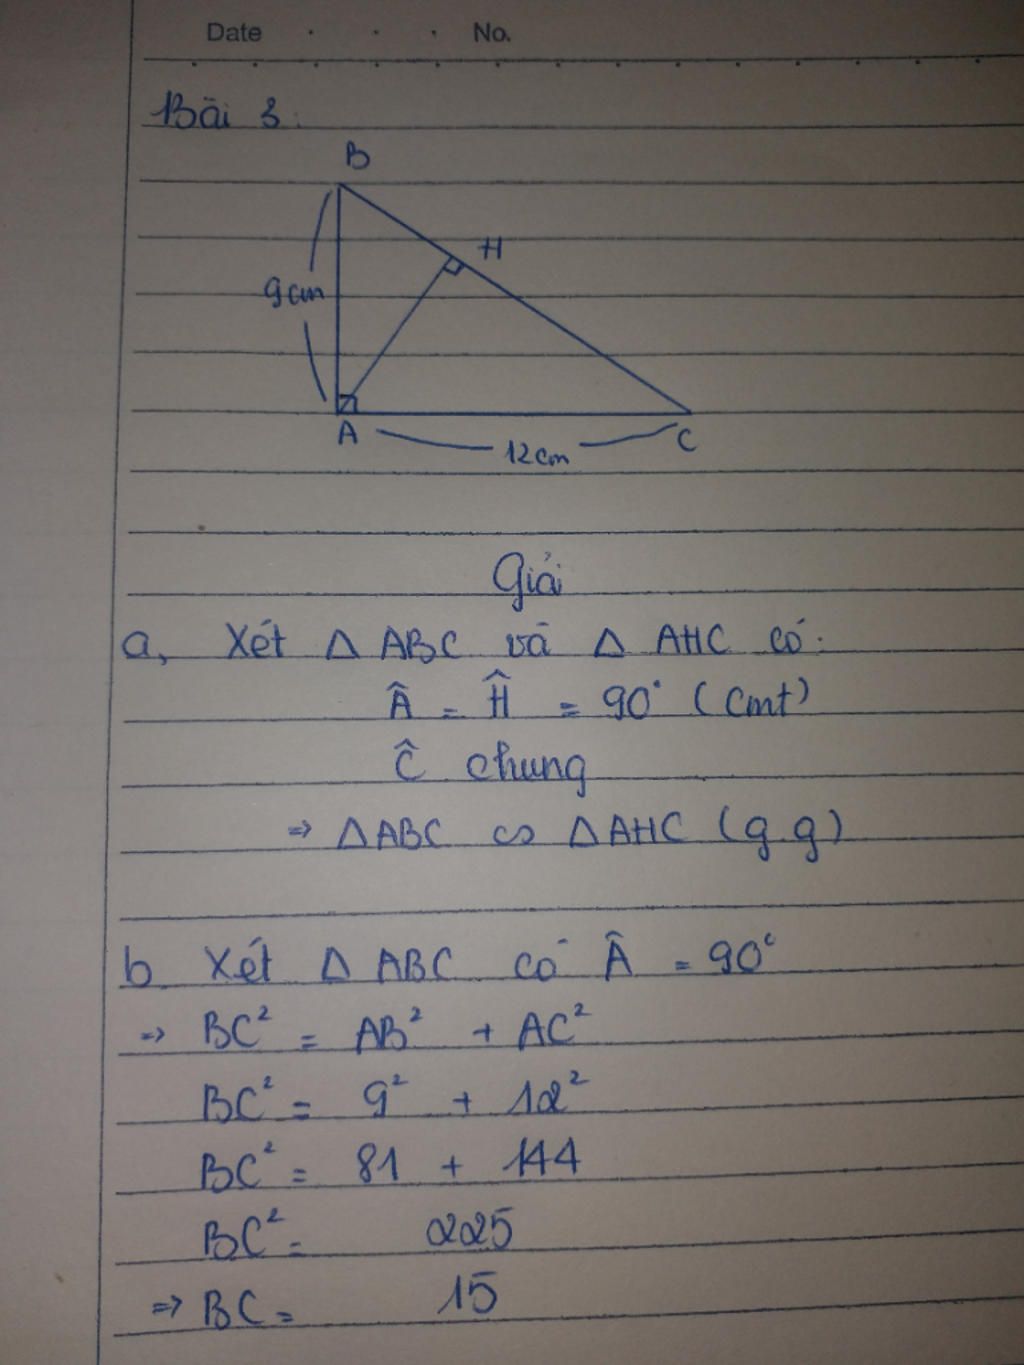 Date No.
Bài 3:
B
H
9cm
A
C
12cm
Giải
a, Xét Δ ABC và Δ AHC có:
Â = Ĥ = 90° (cmt)
Ĉ chung
⇒ ΔABC ∽ ΔAHC (g.g)
b, Xét Δ ABC có Â = 90°
⇒ BC² = AB² + AC²
BC² = 9² + 12²
BC² = 81 + 144
BC² = 225
⇒ BC = 15